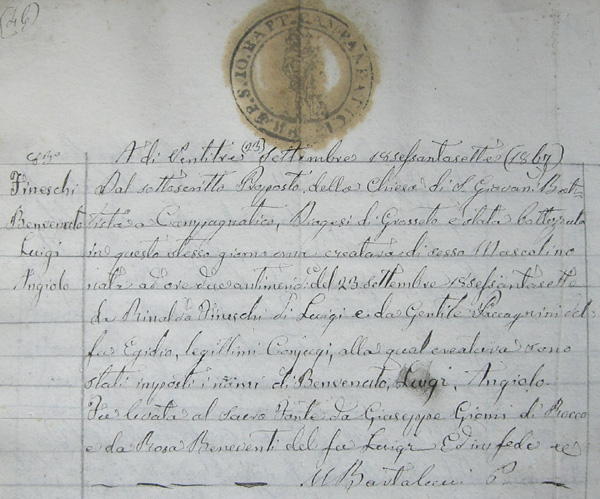 (46)
S. IO. BAPT. CAMPANEATICI
83°
A dì Ventitre (23) Settembre 18sessantasette (1867)
Fineschi
Benvenuto
Luigi
Angiolo
Dal sottoscritto Proposto della Chiesa di S. Giovani Bat=
tista a Campagnatico, Diogesi di Grosseto è stata battezzata
in questo stesso giorno una creatura di sesso Mascolino
nata ad ore due antimerid. del 23 settembre 18sessantasette
da Rinaldo Fineschi di Luigi e da Gentile Paccagnini del
fu Egidio, legittimi Conjugi, alla qual creatura sono
stati imposti i nomi di Benvenuto, Luigi, Angiolo.
Fu levata al Sacro Fonte da Giuseppe Giomi di Rocco
e da Rosa Beneventi del fu Luigi Ed in fede
M Bartalucci P